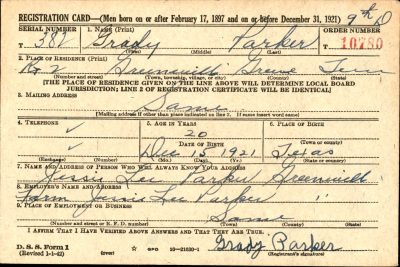 REGISTRATION CARD—(Men born on or after February 17, 1897 and on or before December 31, 1921) 9th D
SERIAL NUMBER 1. Name (Print) ORDER NUMBER
S 382 Grady Parker 10780
(First) (Middle) (Last)
2. Place of Residence (Print)
R 2 Greenville Greene Tenn
(Number and street) (Town, township, village, or city) (County) (State)
[THE PLACE OF RESIDENCE GIVEN ON THE LINE ABOVE WILL DETERMINE LOCAL BOARD
JURISDICTION; LINE 2 OF REGISTRATION CERTIFICATE WILL BE IDENTICAL]
3. Mailing Address
Same
[Mailing address if other than place indicated on line 2. If same insert word same]
4. Telephone 5. Age in Years 6. Place of Birth
20
Date of Birth (Town or county)
Dec 15 1921 Texas
(Exchange) (Number) (Mo.) (Day) (Yr.) (State or country)
7. Name and Address of Person Who Will Always Know Your Address
Jessie Lee Parker Greenville
8. Employer's Name and Address
Farm Jessie Lee Parker
9. Place of Employment or Business
Same
(Number and street or R. F. D. number) (Town) (County) (State)
I Affirm That I Have Verified Above Answers and That They Are True.
D. S. S. Form 1
(Revised 1-1-42) (over) GPO 16-21630-1 Grady Parker
(Registrant's signature)